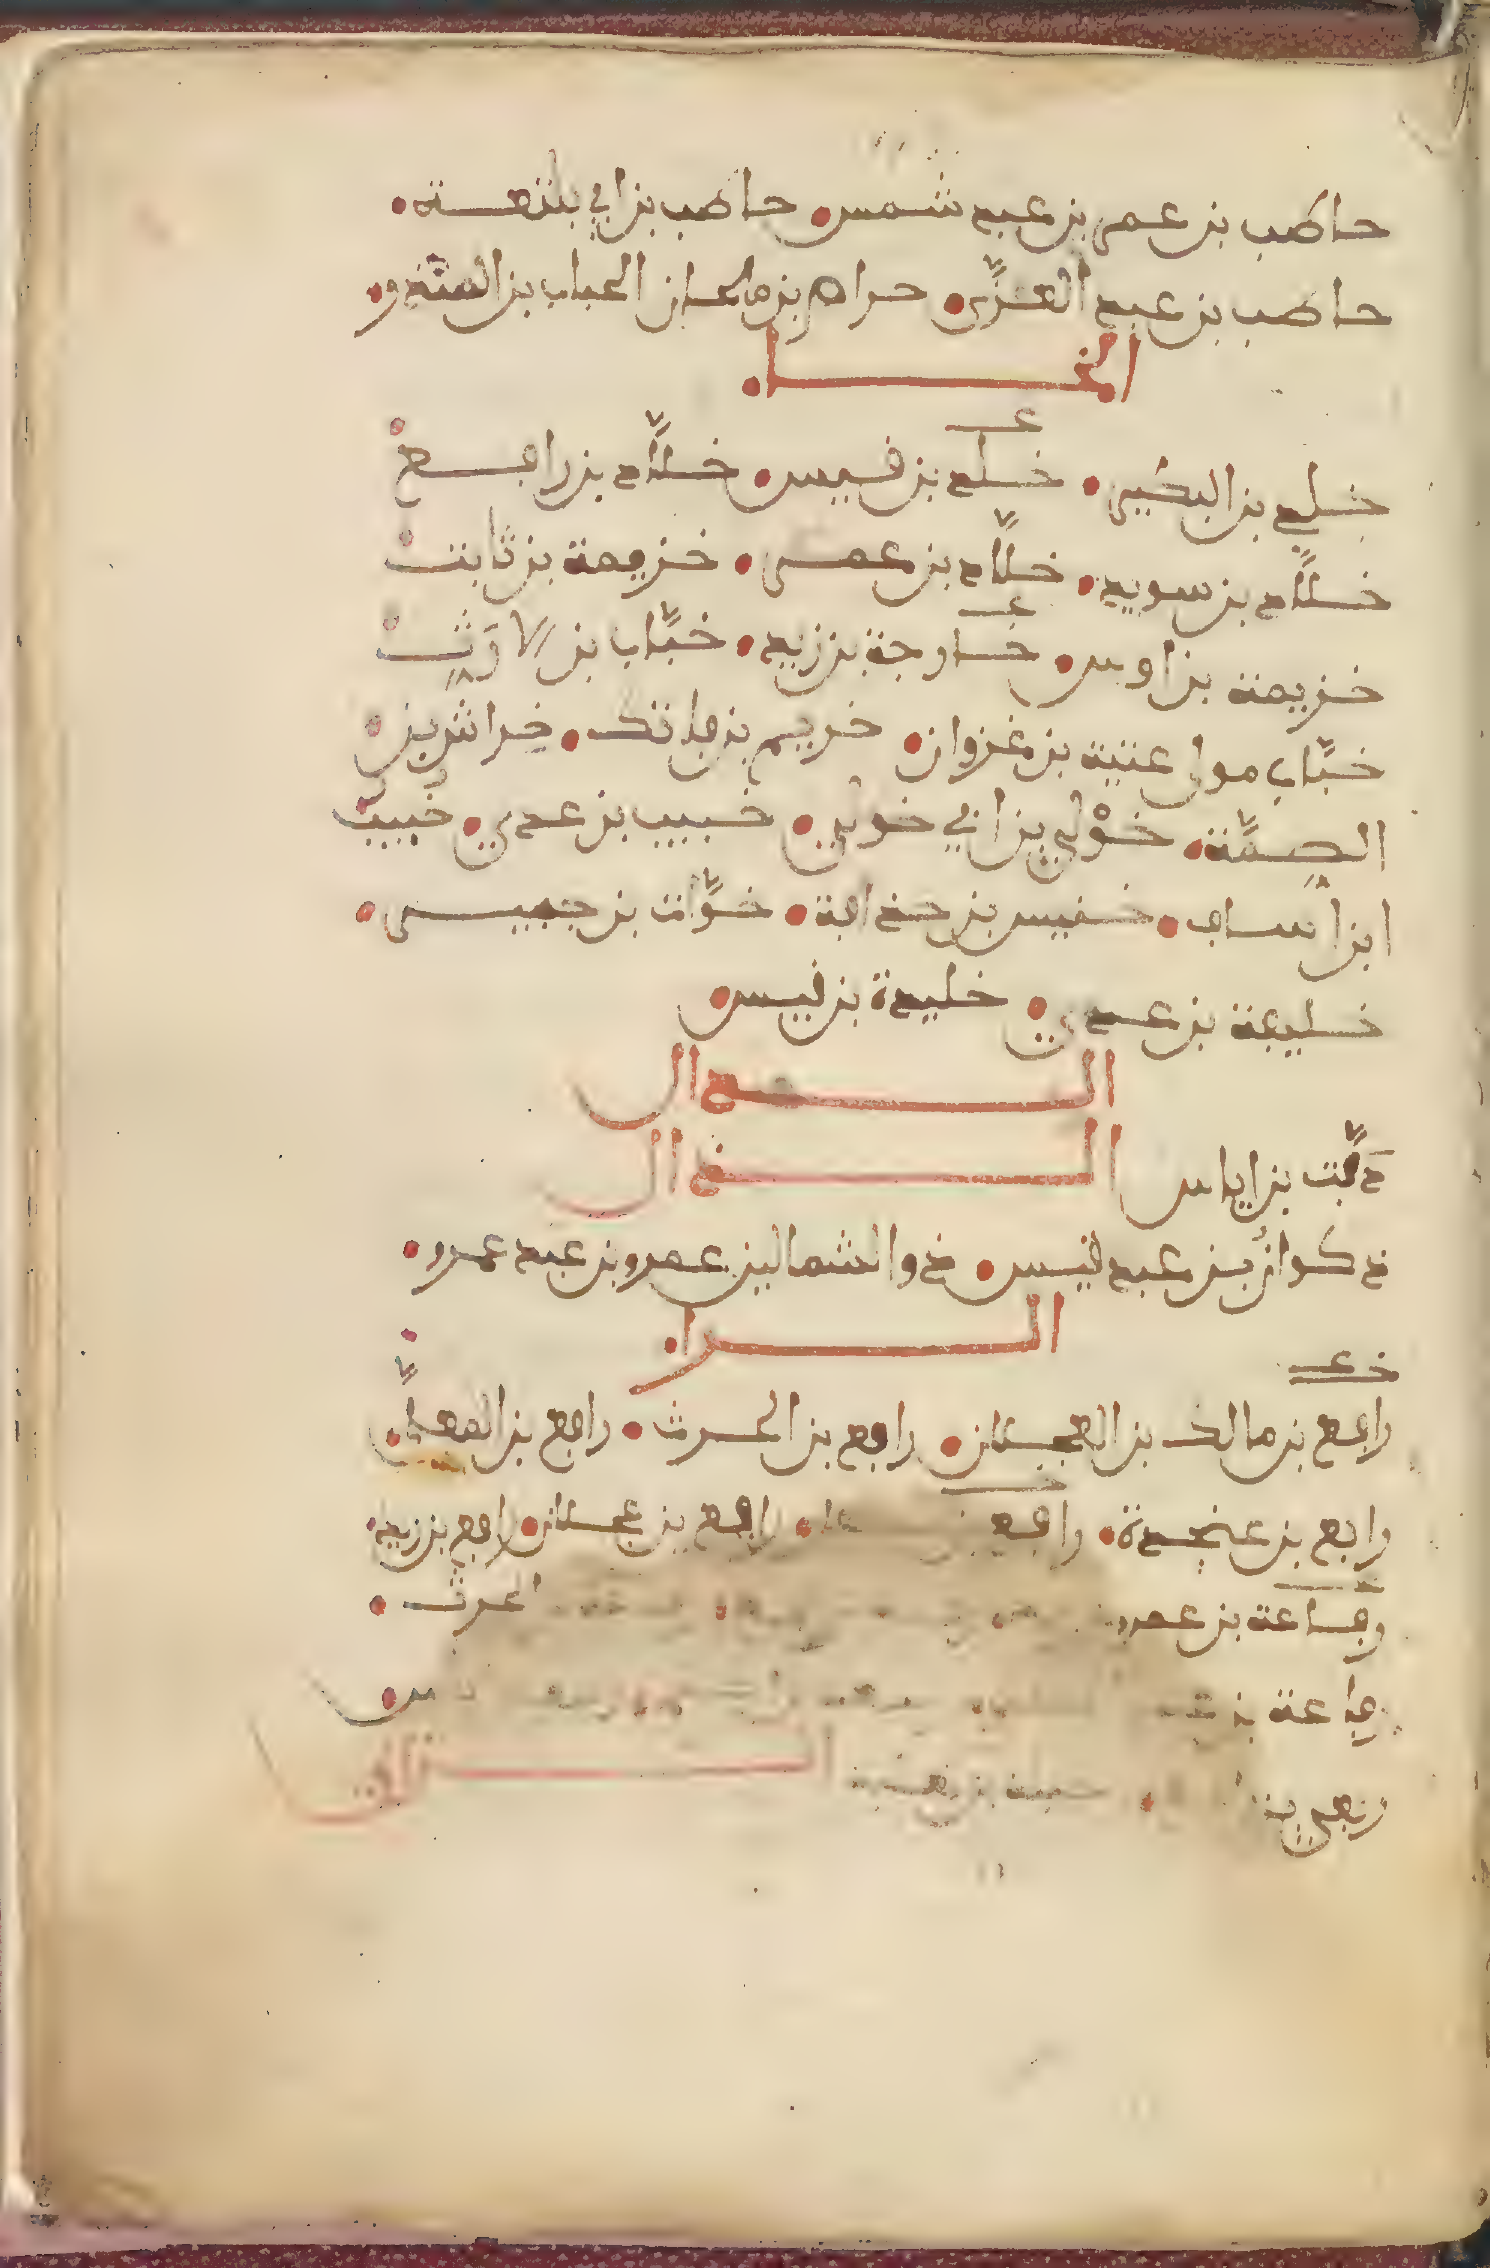 حاطب بن عمر بن عبد شمس حاطب بن ابي بلتعة
حاطب بن عبد العزّى حرام بن ملحان الحباب بن المنذر
الخاء
خلد بن البكير خلد بن قيس خلّاد بن رافع
خلّاد بن سويد خلّاد بن عمر خزيمة بن ثابت
خزيمة بن اوس خارجة بن زيد خبّاب بن الارَتِّ
خبّاب مولى عتبة بن غزوان خريم بن فاتك خِراش بن
الصِمّة خوْلي بن ابي خولي خبيب بن عدي خُبيب
ابن اساف خنيس بن حذافة خوّات بن جبير
خليفة بن عدي خليدة بن قيس
الدال
دقّت بن اياس الذال
ذكوان بن عبد قيس ذو الشمالين عمرو بن عبد عمرو
الراء
رافع بن مالك بن العجلان رافع بن الحرث رافع بن المعلّى
رافع بن عنجدة رافع رافع بن عجلان رافع بن زيد
رفاعة بن عمرو الحرث
رفاعة بن
ربعي بن الزاي